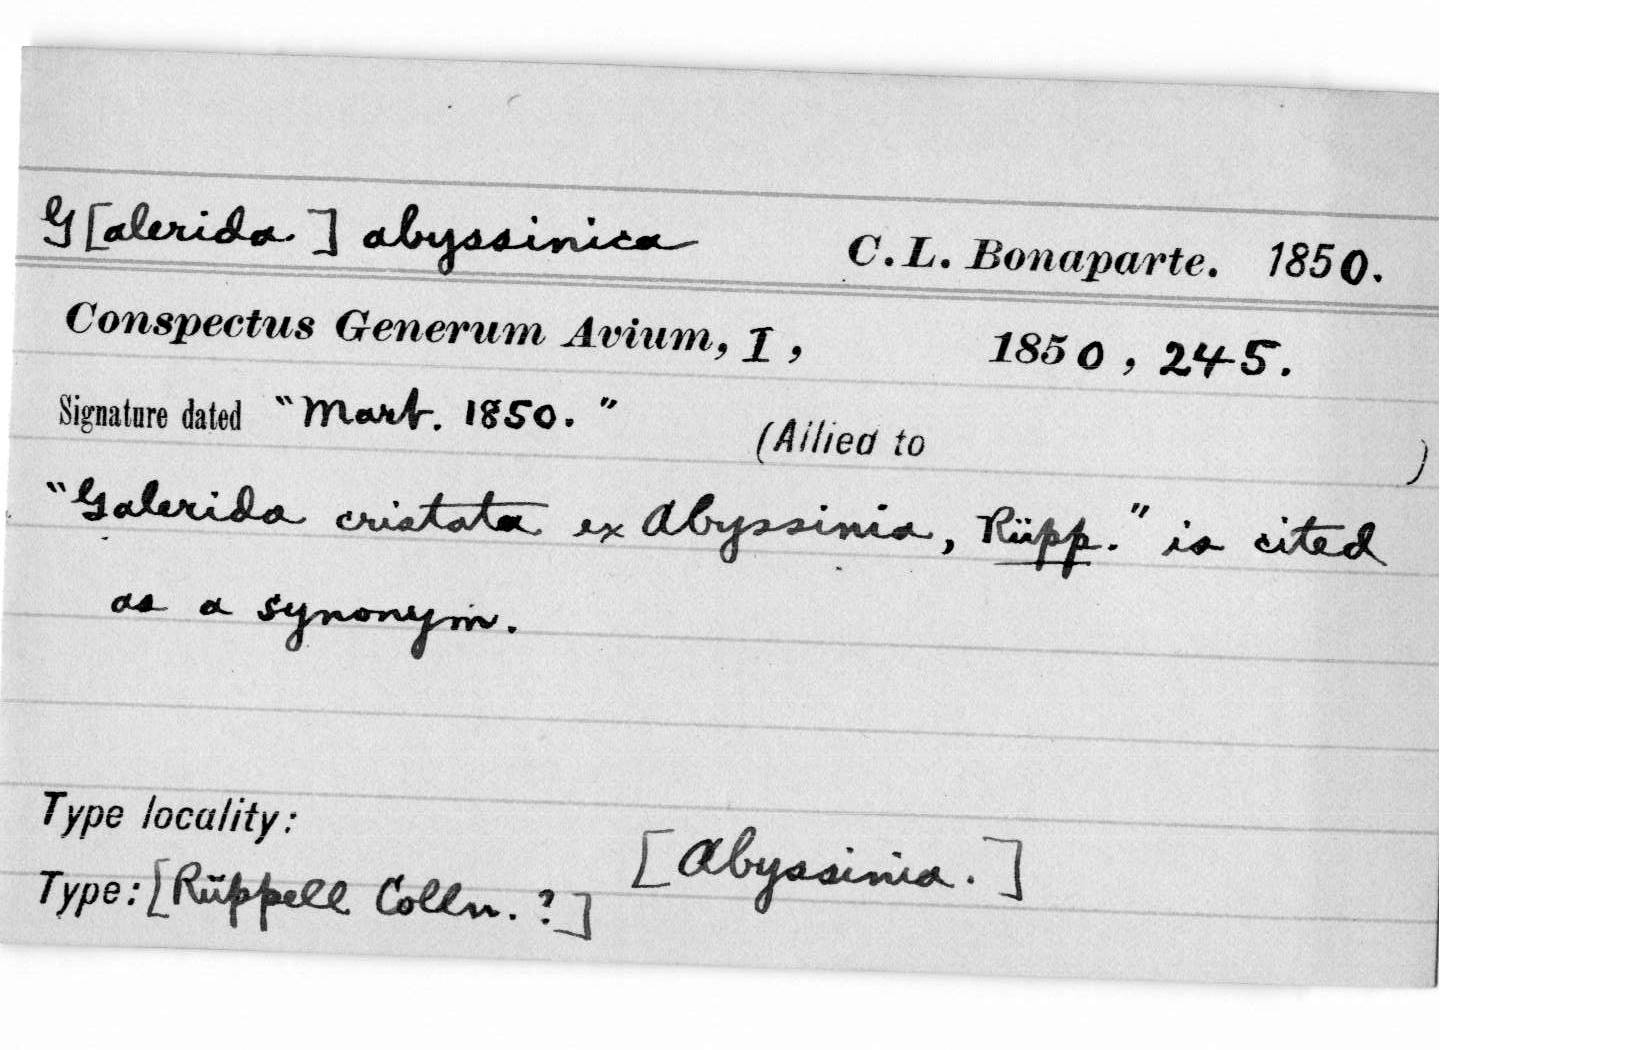 G[alerida.] abyssinica C. L. Bonaparte. 1850.
Conspectus Generum Avium, I, 1850, 245.
Signature dated "Mart. 1850." (Allied to )
"Galerida cristata ex Abyssinia, Rüpp." is cited
as a synonym.
Type locality: [Abyssinia.]
Type: [Rüppell Colln. ?]